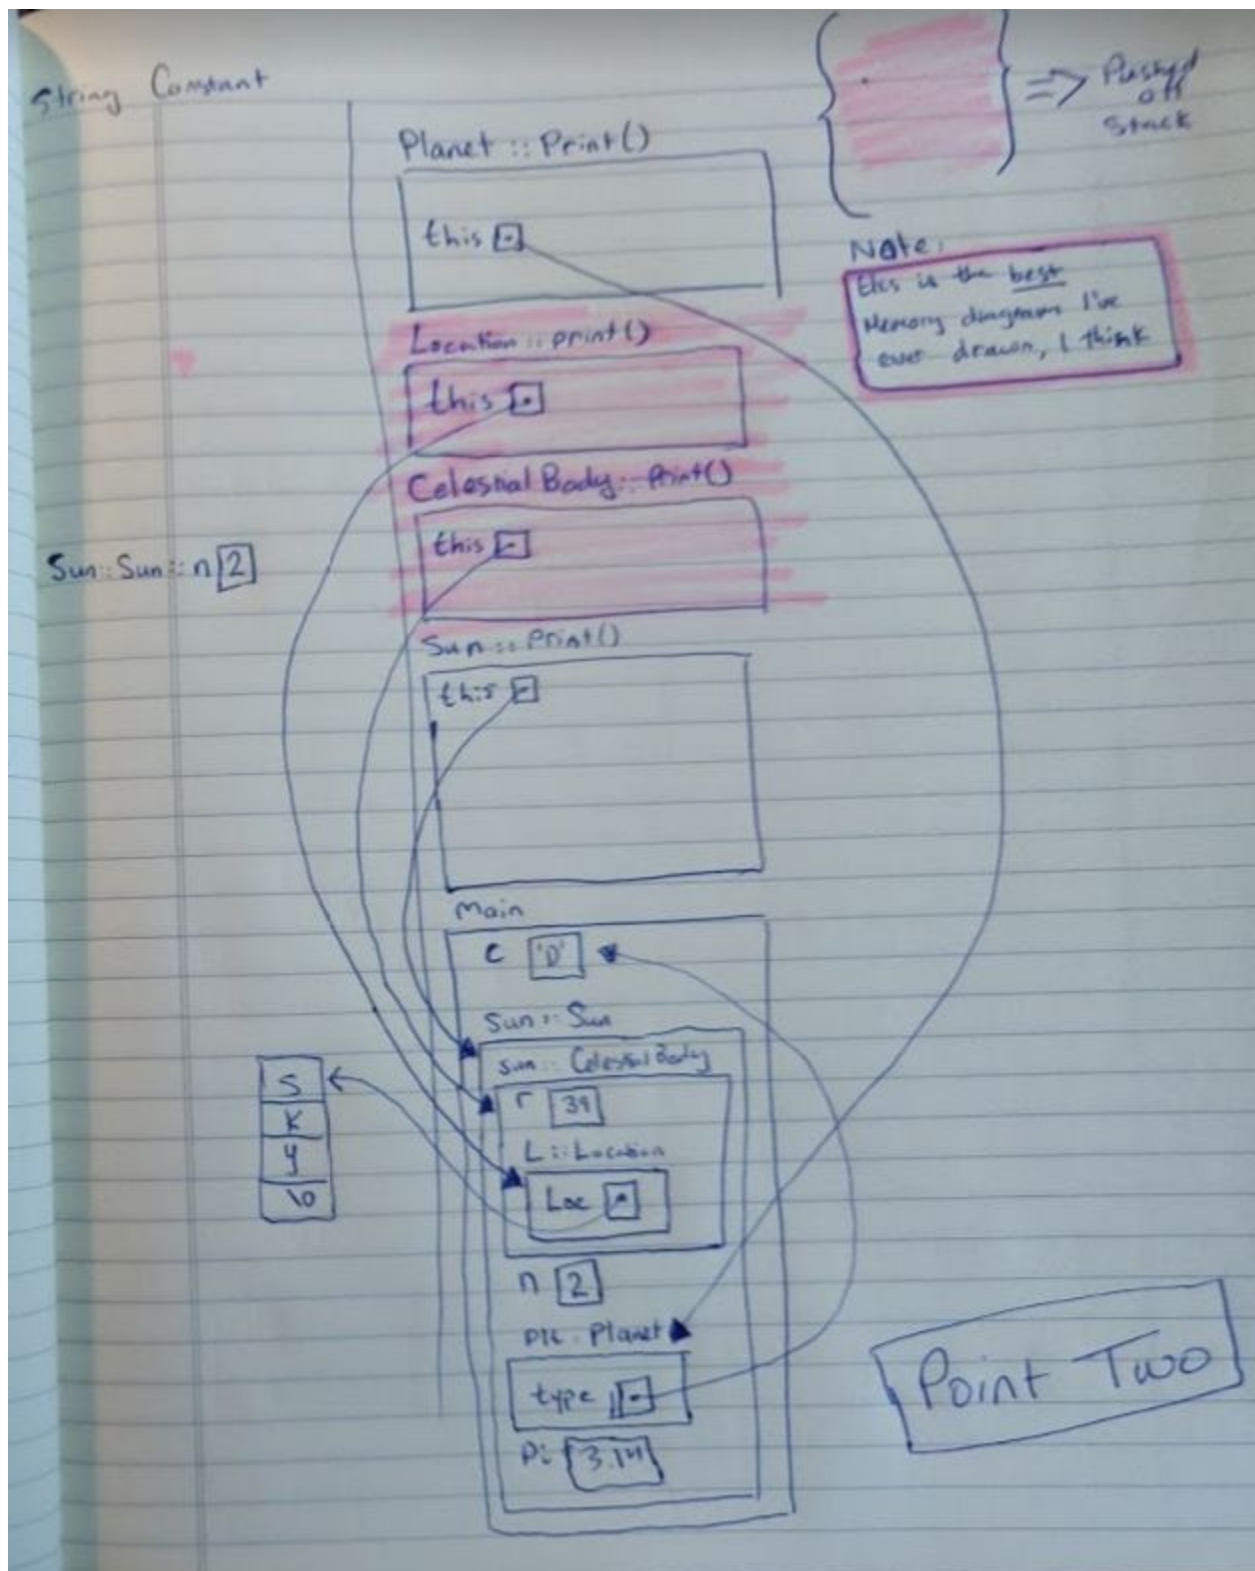 String Constant
=> Pushed
off
Stack
Planet :: Print()
this
Note:
this is the best
Memory diagram I've
ever drawn, I think
Location :: print()
this
Celestial Body :: Print()
this
Sun :: Sun :: n 2
Sun :: Print()
this
Main
C 'D'
Sun :: Sun
sun :: Celestial Body
r 39
L :: Location
Loc
S
K
y
\0
n 2
Planet
type
Pi 3.14
Point Two